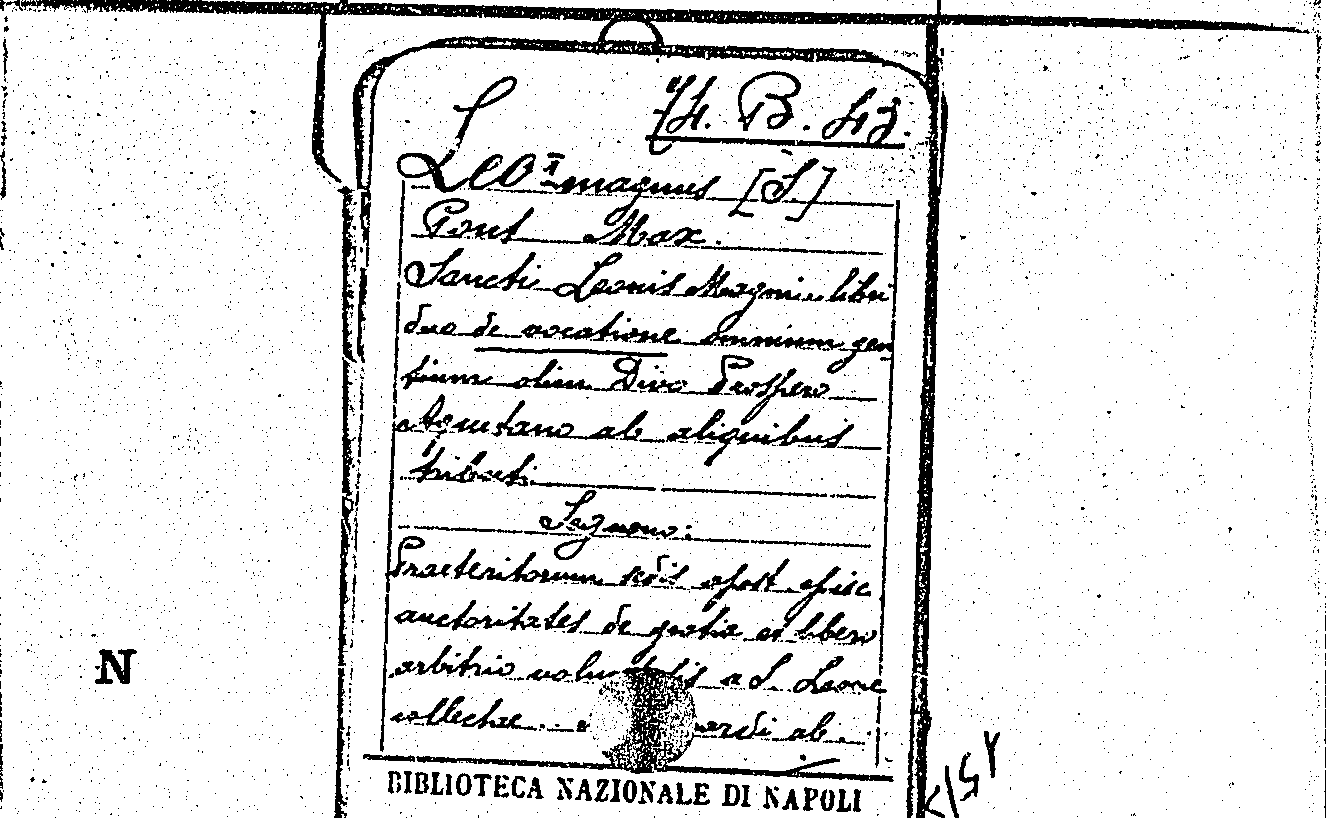 74. B. 43.
Leo I magnus [S.]
Pont Max.
Sancti Leonis Magni libri
duo de vocatione omnium gen
tium olim Divo Prospero
Aquitano ab aliquibus
tributi.
Seguono:
Praeteritorum sedis apost episc
auctoritates de gratia et libero
arbitrio voluntatis a S. Leone
collectae ab.
BIBLIOTECA NAZIONALE DI NAPOLI
N